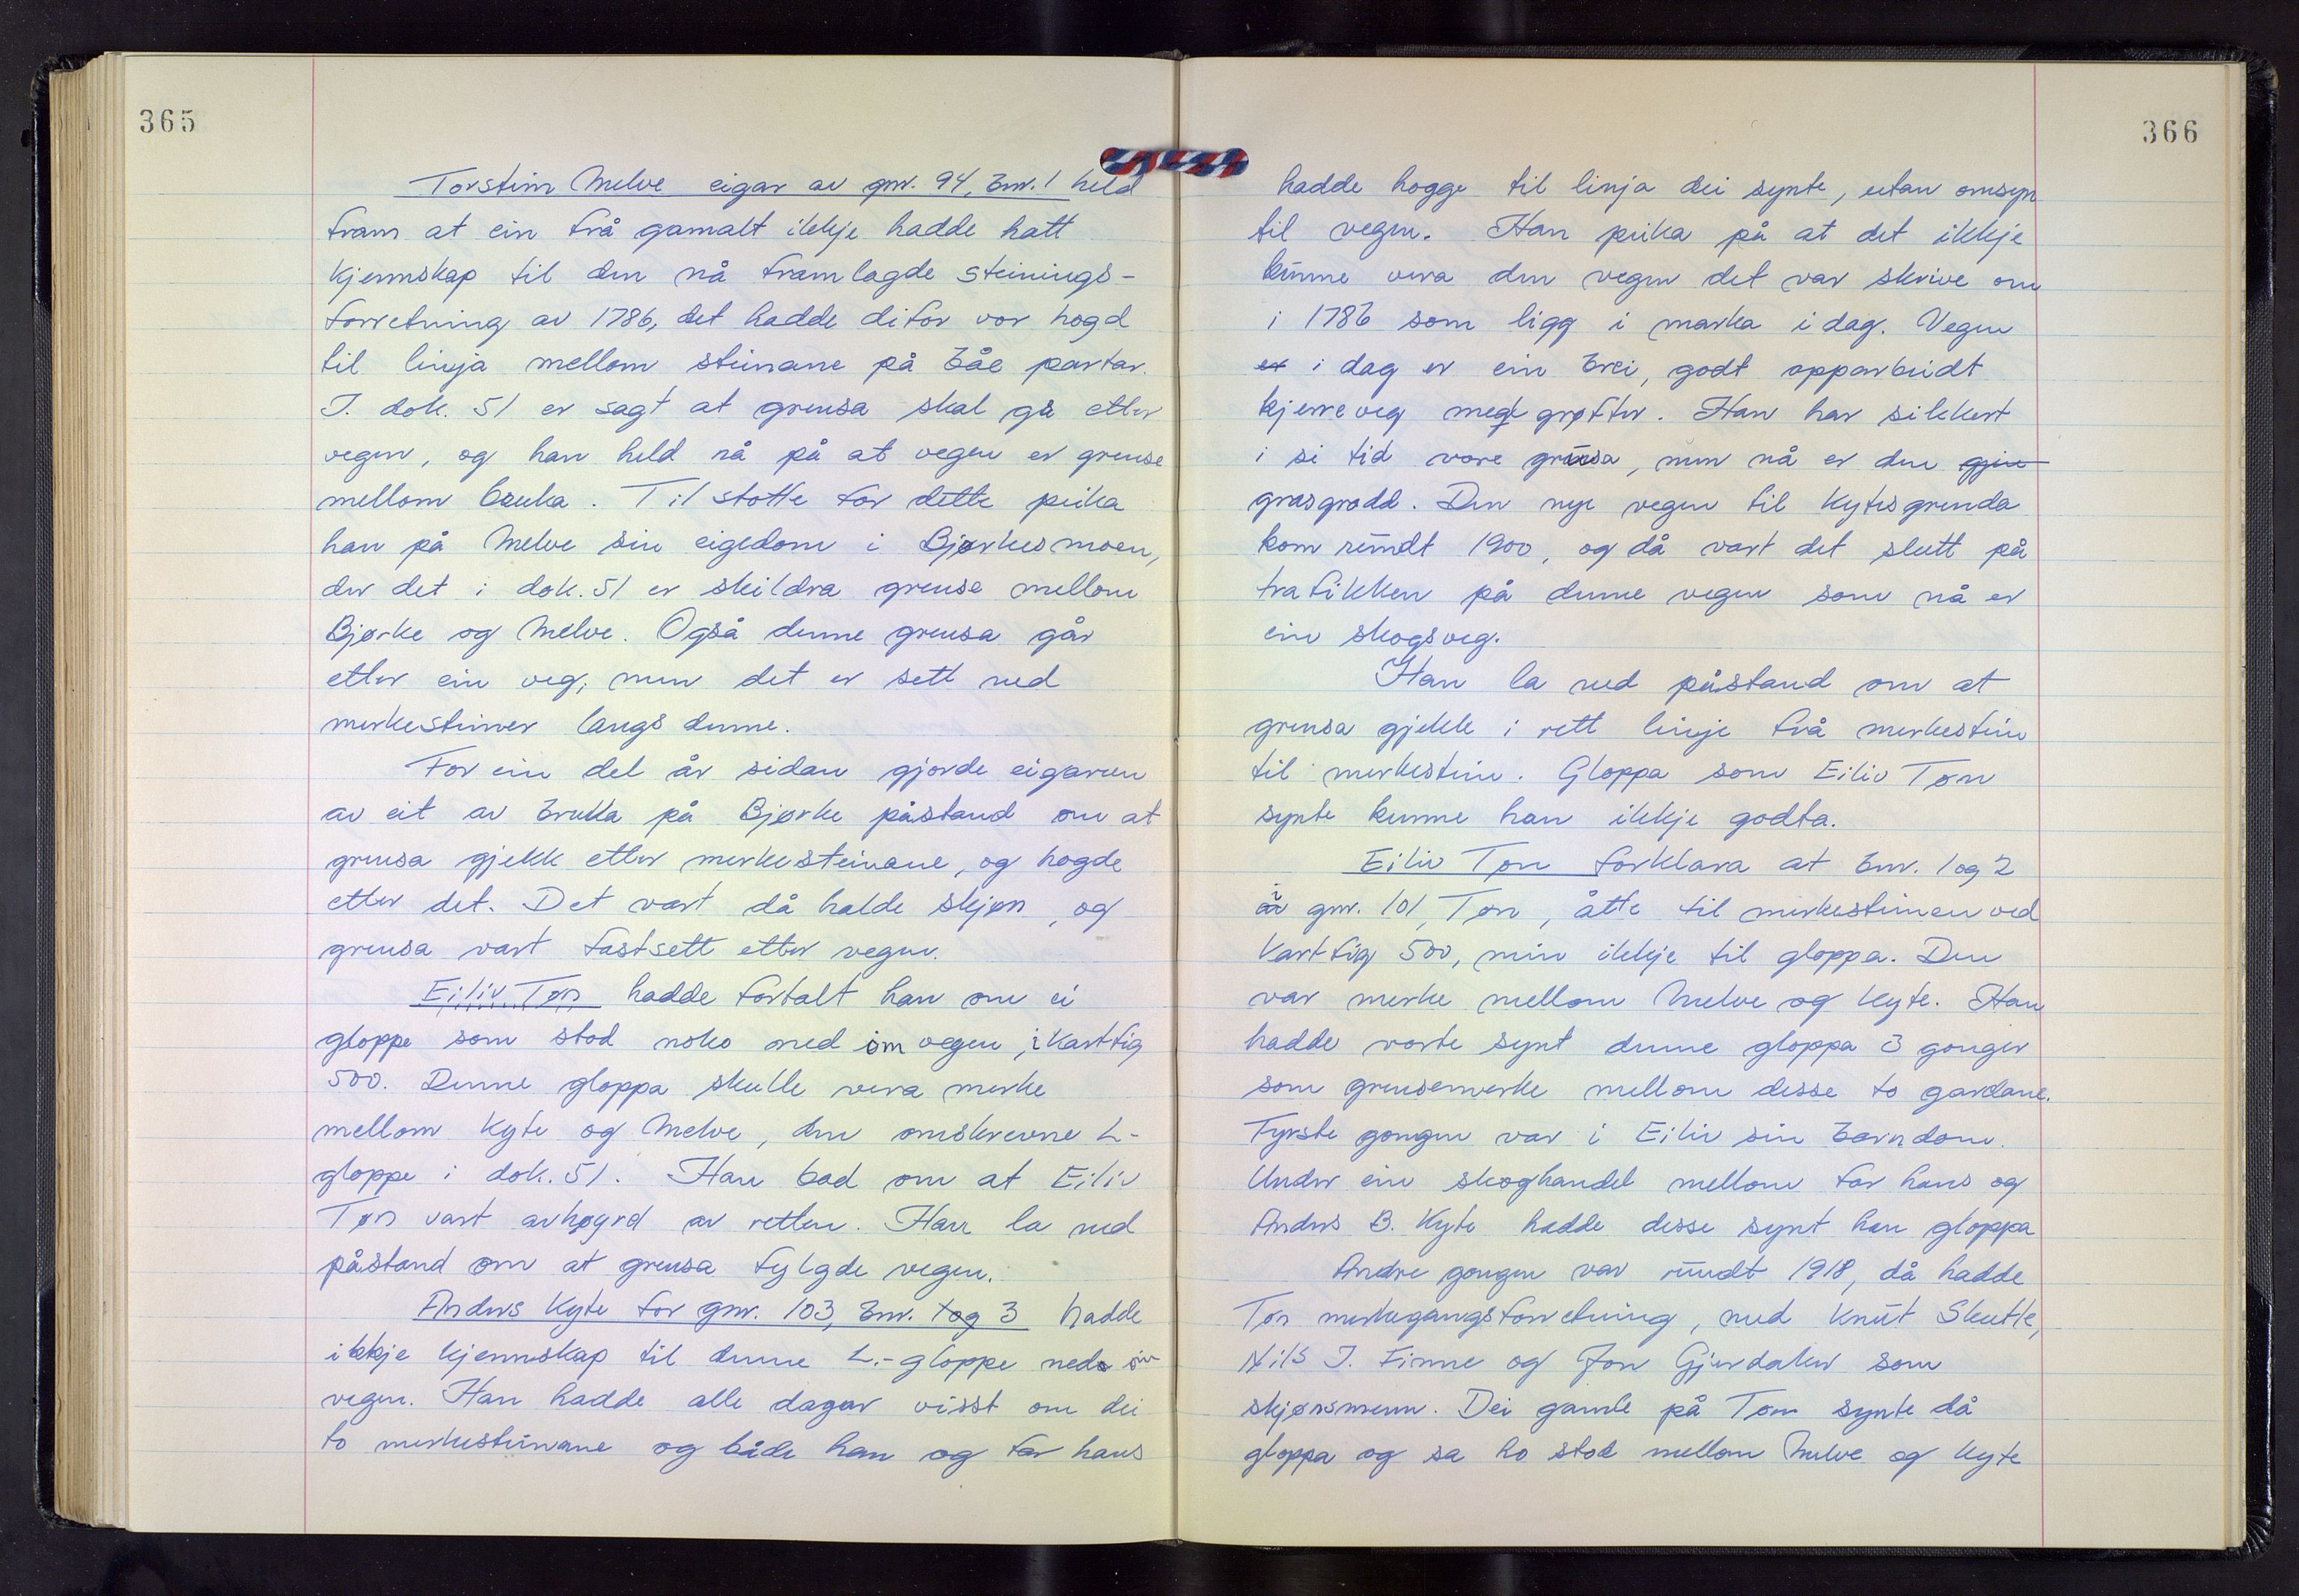 365
Torstein Melve eigar av gnr. 94, bnr. 1 held
fram at ein frå gamalt ikkje hadde hatt
kjennskap til den nå framlagde steinings-
forretning av 1786, det hadde difor vor hogd
til linja mellom steinane på båe partar.
I. dok. 51 er sagt at grensa skal gå etter
vegen, og han held nå på at vegen er grense
mellom bruka. Til støtte for dette peika
han på Melve sin eigedom i Bjørkesmoen,
der det i dok. 51 er skildra grense mellom
Bjørke og Melve. Også denne grensa går
etter ein veg, men det er sett ned
merkesteiner langs denne.
For ein del år sidan gjorde eigaren
av eit av bruka på Bjørke påstand om at
grensa gjekk etter merkesteinane, og hogde
etter det. Det vart då halde skjøn, og
grensa vart fastsett etter vegen.
Eiliv Tøn hadde fortalt han om ei
gloppe som stod noko ned om vegen, i Kartfig
500. Denne gloppa skulle vera merke
mellom Kyte og Melve, den omskrevne L-
gloppe i dok. 51. Han bad om at Eiliv
Tøn vart avhøyrd av retten. Han la ned
påstand om at grensa fylgde vegen.
Anders Kyte for gnr. 103, bnr. 1 og 3 hadde
ikkje kjennskap til denne L.-gloppe neda om
vegen. Han hadde alle dagar visst om dei
to merkesteinane og både han og far hans
366
hadde hogge til linja dei synte, utan omsyn
til vegen. Han peika på at det ikkje
kunne vera den vegen det var skrive om
i 1786 som ligg i marka i dag. Vegen
er i dag er ein brei, godt opparbeidt
kjerreveg med grøfter. Han har sikkert
i si tid vore grusa, men nå er den
grasgrodd. Den nye vegen til Kytesgrenda
kom rundt 1900, og då vart det slutt på
trafikken på denne vegen som nå er
ein skogsveg.
Han la ned påstand om at
grensa gjekk i rett linje frå merkestein
til merkestein. Gloppa som Eiliv Tøn
synte kunne han ikkje godta.
Eiliv Tøn forklara at bnr. 1 og 2
i gnr. 101, Tøn, åtte til merkesteinen ved
Kartfig 500, men ikkje til gloppa. Den
var merke mellom Melve og Kyte. Han
hadde vorte synt denne gloppa 3 gonger
som grensemerke mellom desse to gardane.
Fyrste gongen var i Eiliv sin barndom.
Under ein skoghandel mellom far hans og
Anders B. Kyte hadde desse synt han gloppa
Andre gongen var rundt 1918, då hadde
Tøn merkegangsforretning, med Knut Skutle,
Nils I. Finne og Jon Gjerdaker som
skjønsmenn. Dei gamle på Tøn synte då
gloppa og sa ho stod mellom Melve og Kyte